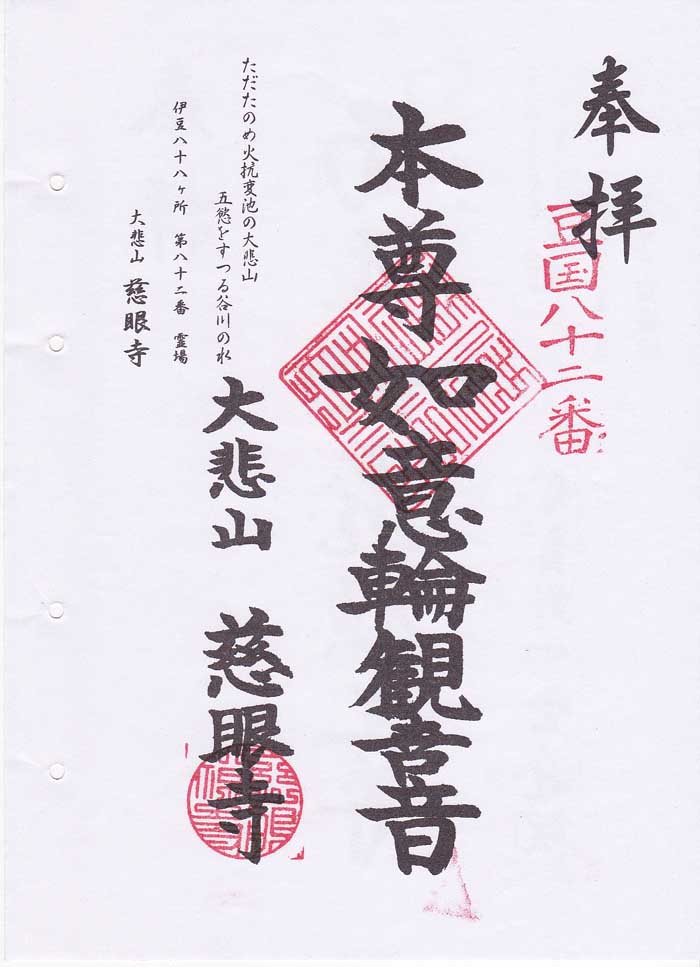 奉拝
豆国八十二番
本尊如意輪観世音
大悲山 慈眼寺
ただたのめ火抗変池の大悲山
五慾をすつる谷川の水
伊豆八十八ヶ所 第八十二番 霊場
大悲山 慈眼寺